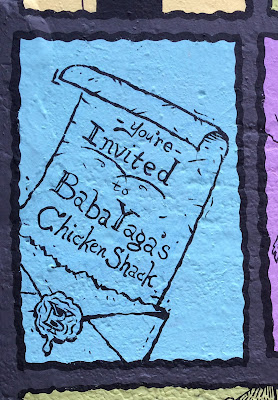 -You're-
Invited
to
Baba Yaga's
Chicken Shack
B